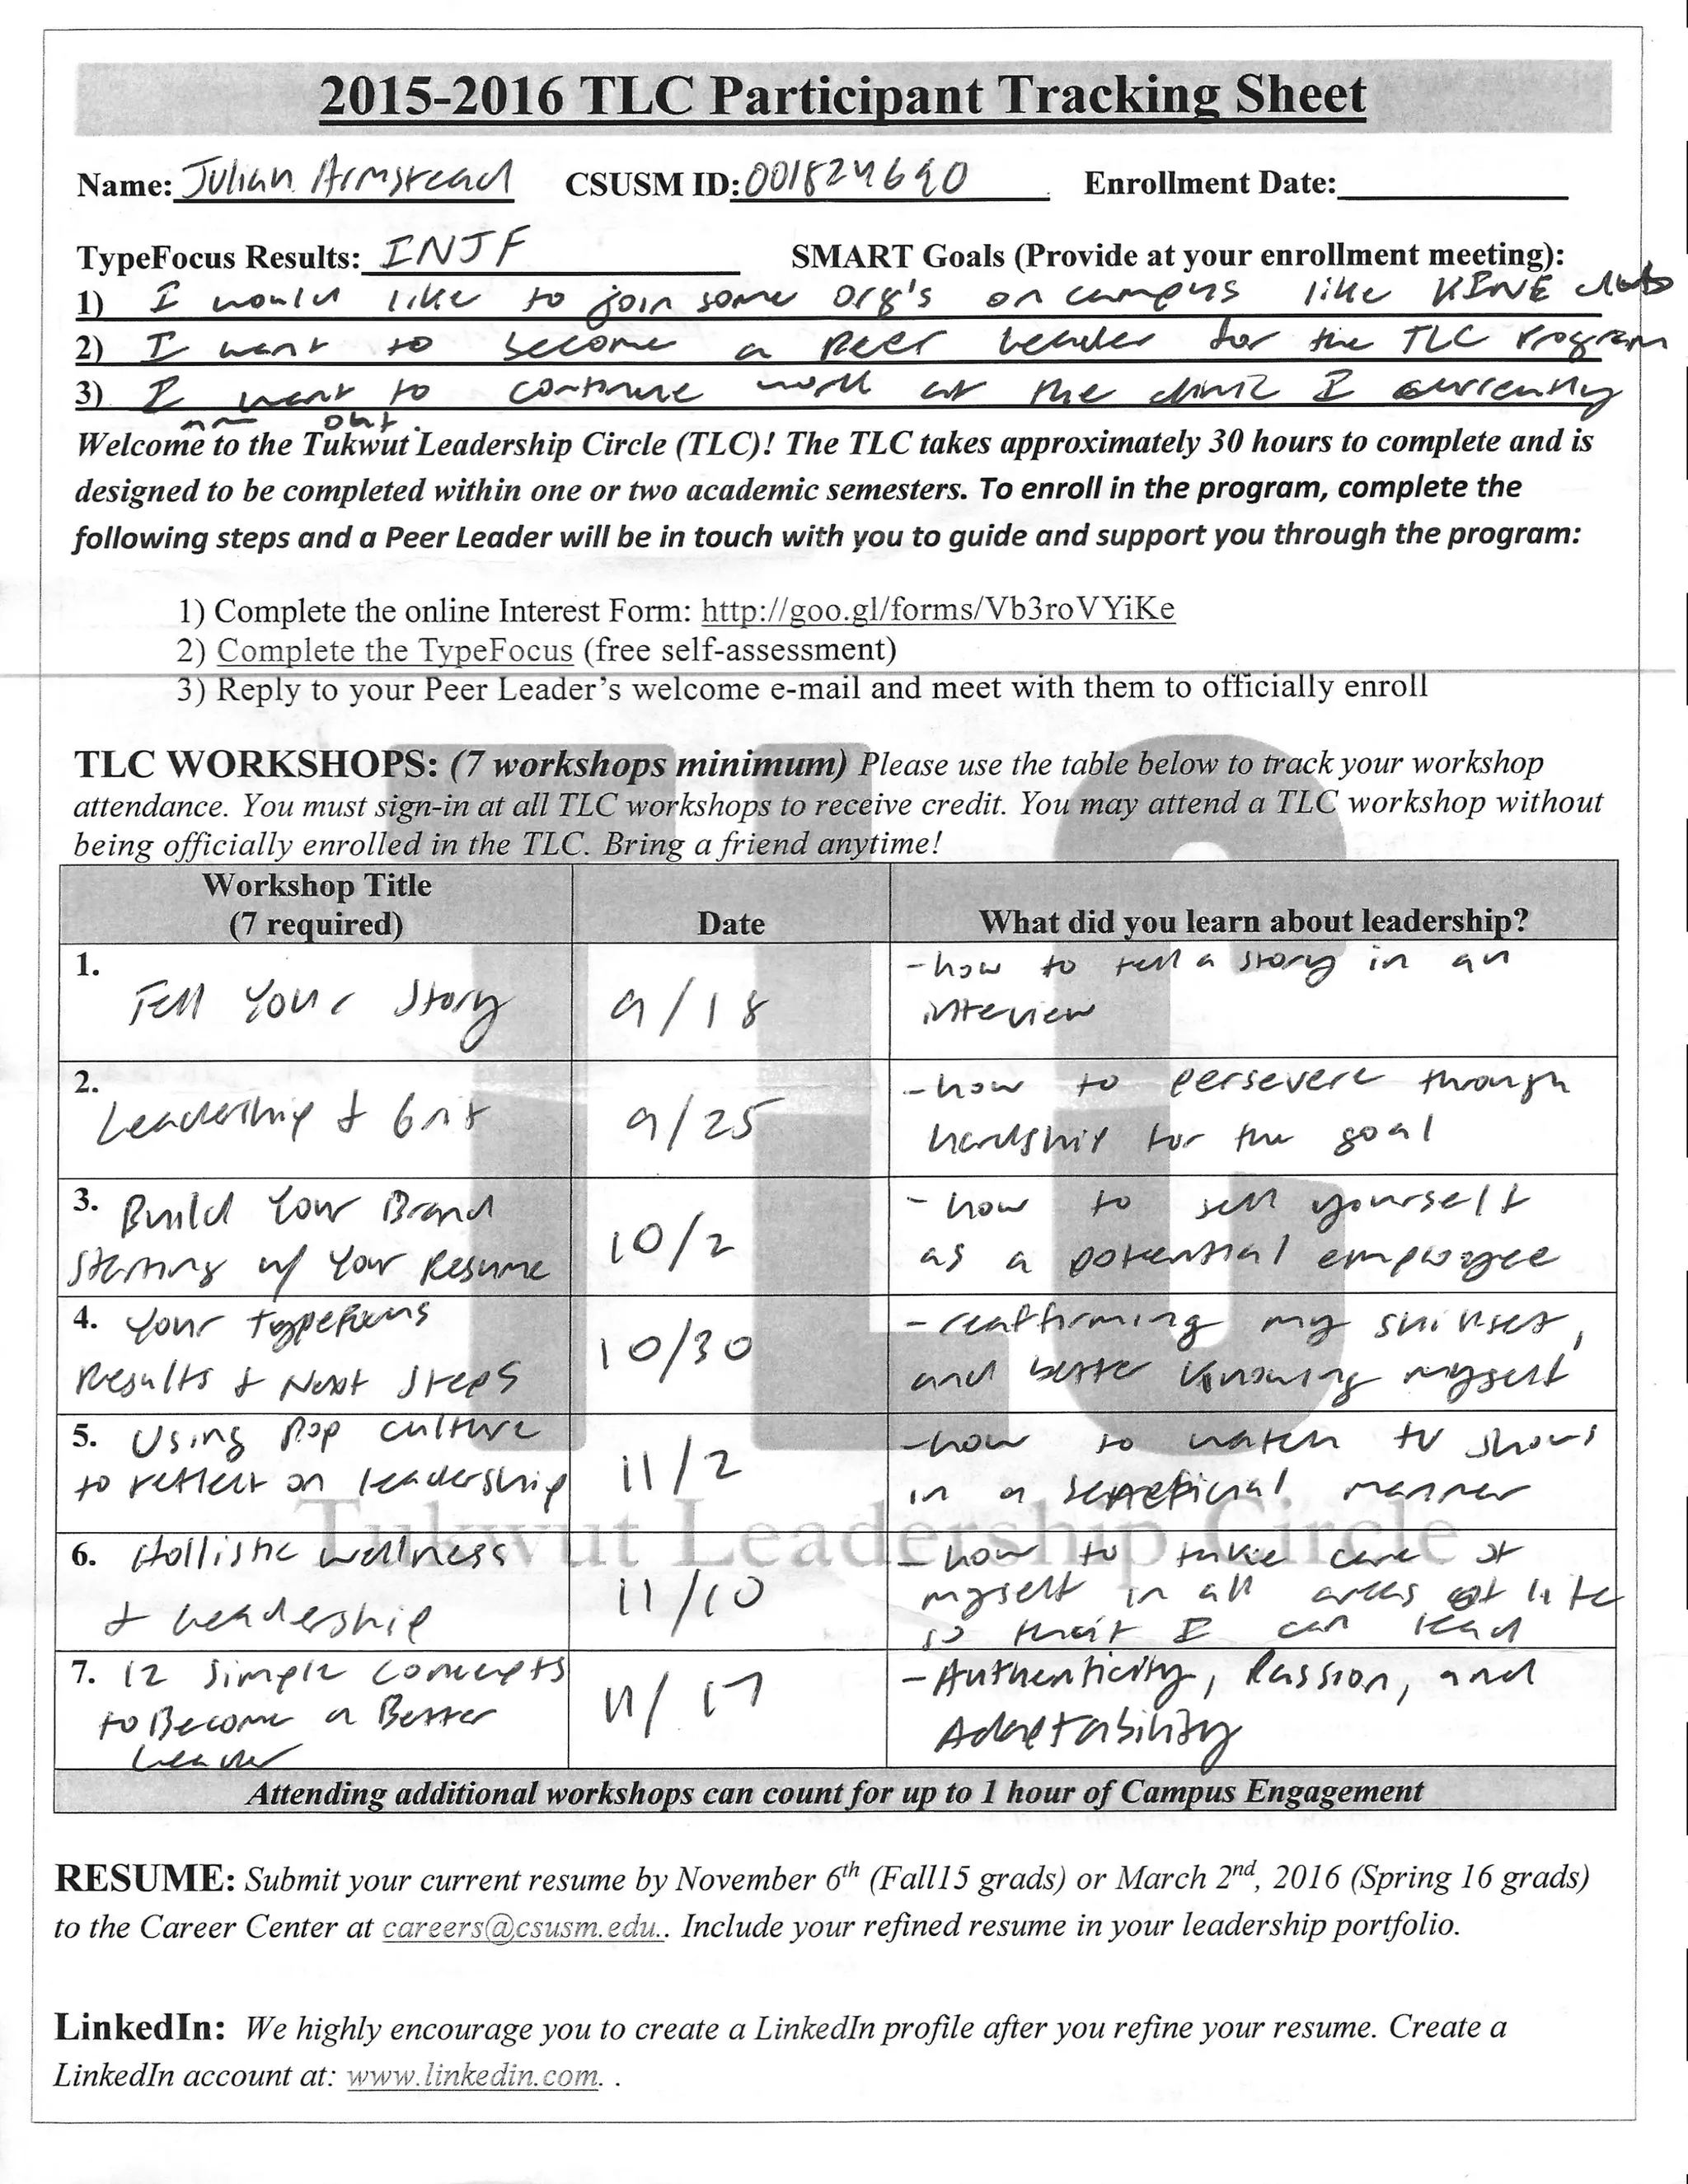 2015-2016 TLC Participant Tracking Sheet
Name: Julian Armstead CSUSM ID: 001824690 Enrollment Date:
TypeFocus Results: INJF SMART Goals (Provide at your enrollment meeting):
1) I would like to join some org's on campus like KINE club
2) I want to become a Peer Leader for the TLC Program
3) I want to continue work at the clinic I currently
am at.
Welcome to the Tukwut Leadership Circle (TLC)! The TLC takes approximately 30 hours to complete and is
designed to be completed within one or two academic semesters. To enroll in the program, complete the
following steps and a Peer Leader will be in touch with you to guide and support you through the program:
1) Complete the online Interest Form: http://goo.gl/forms/Vb3roVYiKe
2) Complete the TypeFocus (free self-assessment)
3) Reply to your Peer Leader's welcome e-mail and meet with them to officially enroll
TLC WORKSHOPS: (7 workshops minimum) Please use the table below to track your workshop
attendance. You must sign-in at all TLC workshops to receive credit. You may attend a TLC workshop without
being officially enrolled in the TLC. Bring a friend anytime!
Workshop Title
(7 required) Date What did you learn about leadership?
1. Tell Your Story 9/18 - how to tell a story in an
interview
2. Leadership + Grit 9/25 - how to persevere through
hardship for the goal
3. Build Your Brand
Starting w/ Your Resume 10/2 - how to sell yourself
as a potential employee
4. Your Typefocus
Results + Next Steps 10/30 - reaffirming my skillset,
and better knowing myself
5. Using Pop culture
to reflect on leadership 11/2 - how to watch tv shows
in a beneficial manner
6. Hollistic Wellness
+ Leadership 11/10 - how to take care of
myself in all areas of life
so that I can lead
7. 12 Simple Concepts
to Become a Better
Leader 11/17 - Authenticity, Passion, and
Adaptability
Attending additional workshops can count for up to 1 hour of Campus Engagement
TLC
Tukwut Leadership Circle
RESUME: Submit your current resume by November 6th (Fall15 grads) or March 2nd, 2016 (Spring 16 grads)
to the Career Center at careers@csusm.edu.. Include your refined resume in your leadership portfolio.
LinkedIn: We highly encourage you to create a LinkedIn profile after you refine your resume. Create a
LinkedIn account at: www.linkedin.com. .